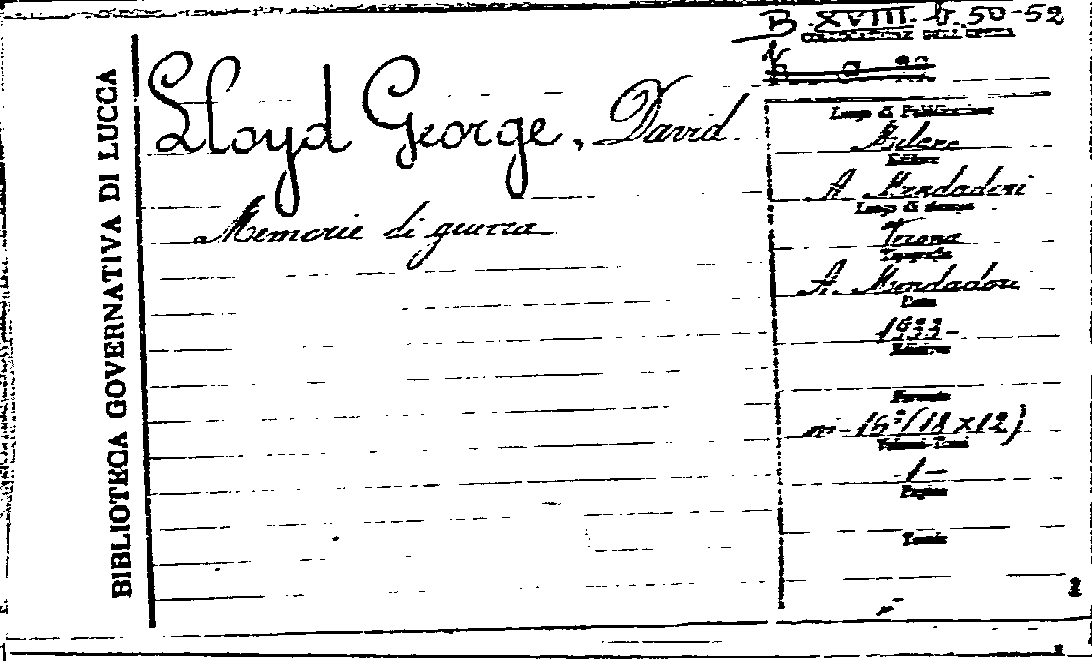 B. XVIII. b. 50-52
COLLOCAZIONE DELL'OPERA
BIBLIOTECA GOVERNATIVA DI LUCCA
Lloyd George, David
Memorie di guerra
Luogo di Pubblicazione
Editore
A. Mondadori
Luogo di stampa
Verona
Tipografia
A. Mondadori
Data
1933-
Edizione
Formato
in-16º (18x12)
Volumi-Tomi
1-
Pagine
Tavole